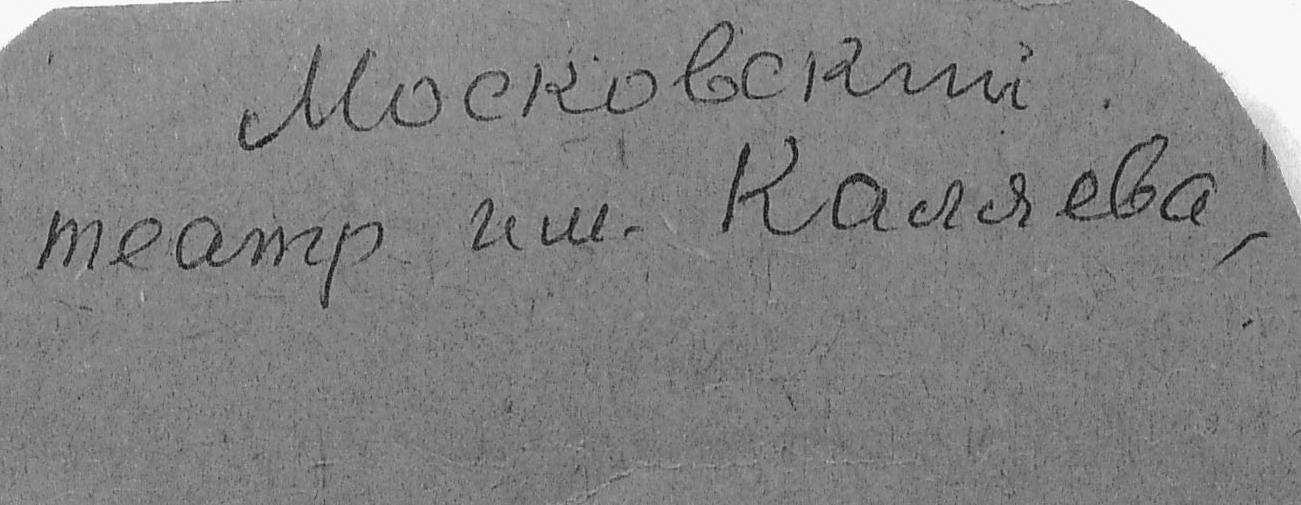 Московский
театр им. Каляева,